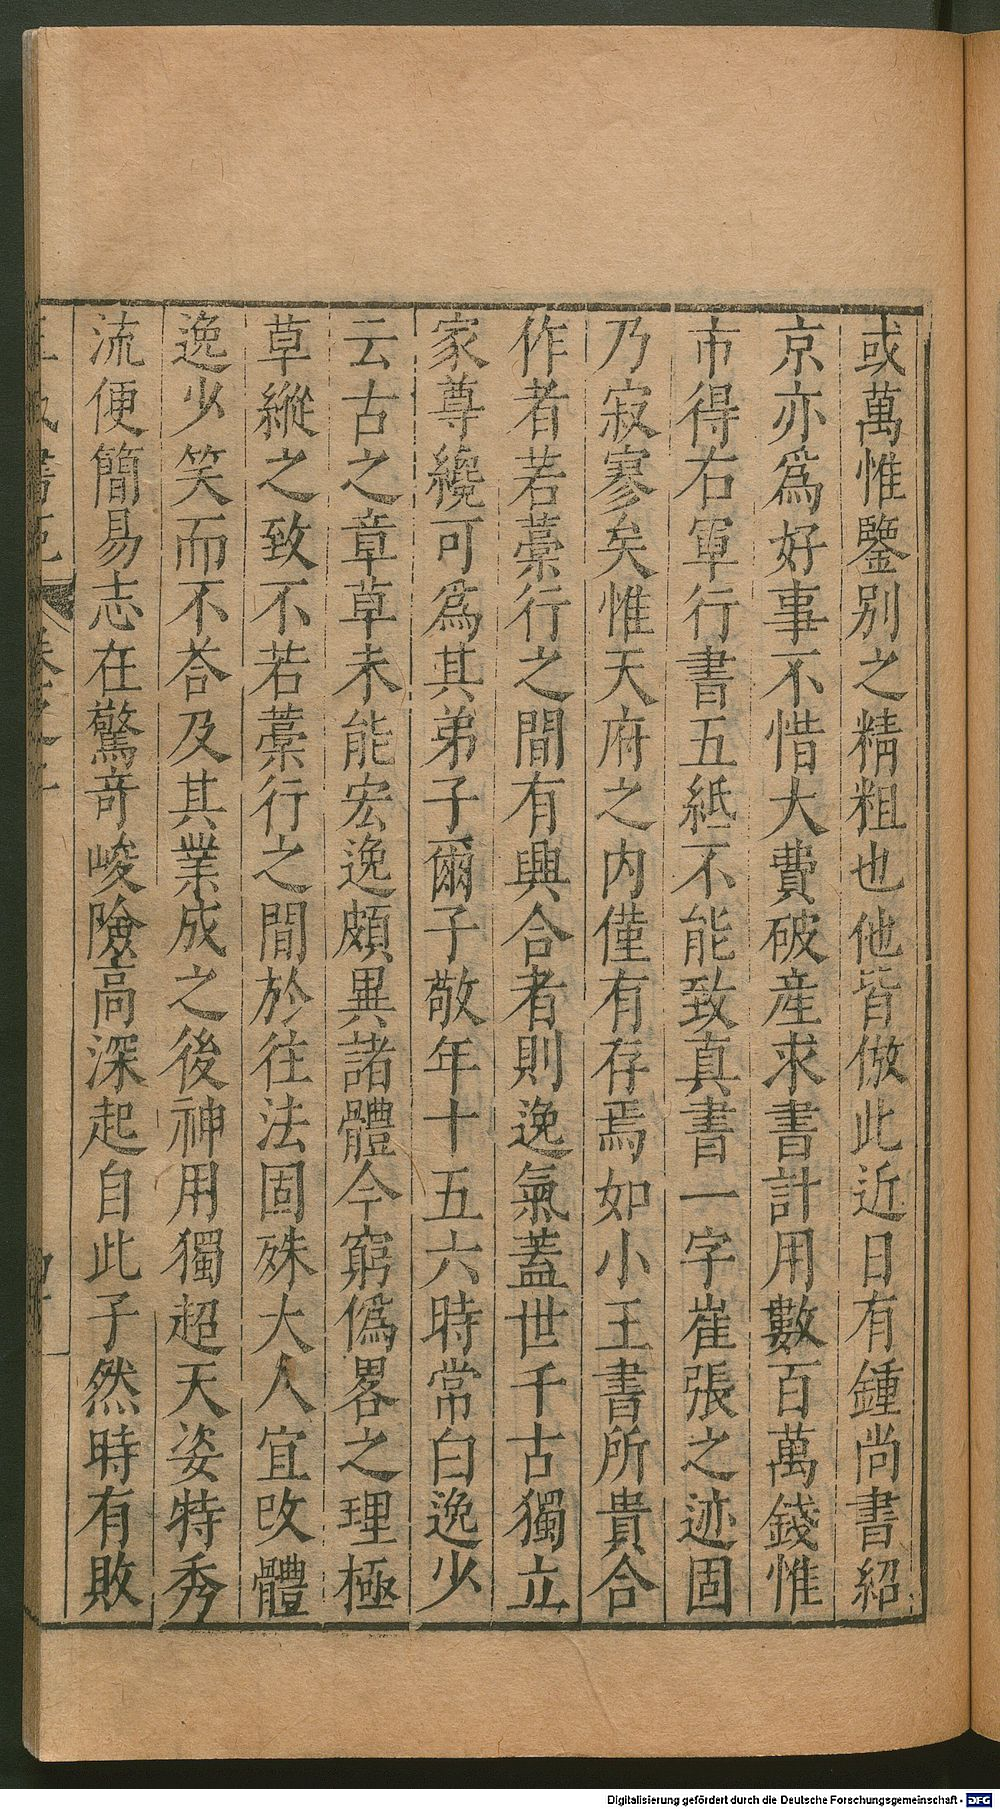 或萬惟鑒別之精粗也他皆倣此近日有鍾尚書紹
京亦爲好事不惜大費破産求書計用數百萬錢惟
市得右軍行書五紙不能致真書一字崔張之迹固
乃寂寥矣惟天府之内僅有存焉如小王書所貴合
作者若藁行之間有興合者則逸氣蓋世千古獨立
家尊纔可爲其弟子爾子敬年十五六時常白逸少
云古之章草未能宏逸頗異諸體今窮僞畧之理極
草縱之致不若藁行之間於往法固殊大人宜改體
逸少笑而不答及其業成之後神用獨超天姿特秀
流便簡易志在驚奇峻險高深起自此子然時有敗
書苑 卷之
Digitalisierung gefördert durch die Deutsche Forschungsgemeinschaft - DFG